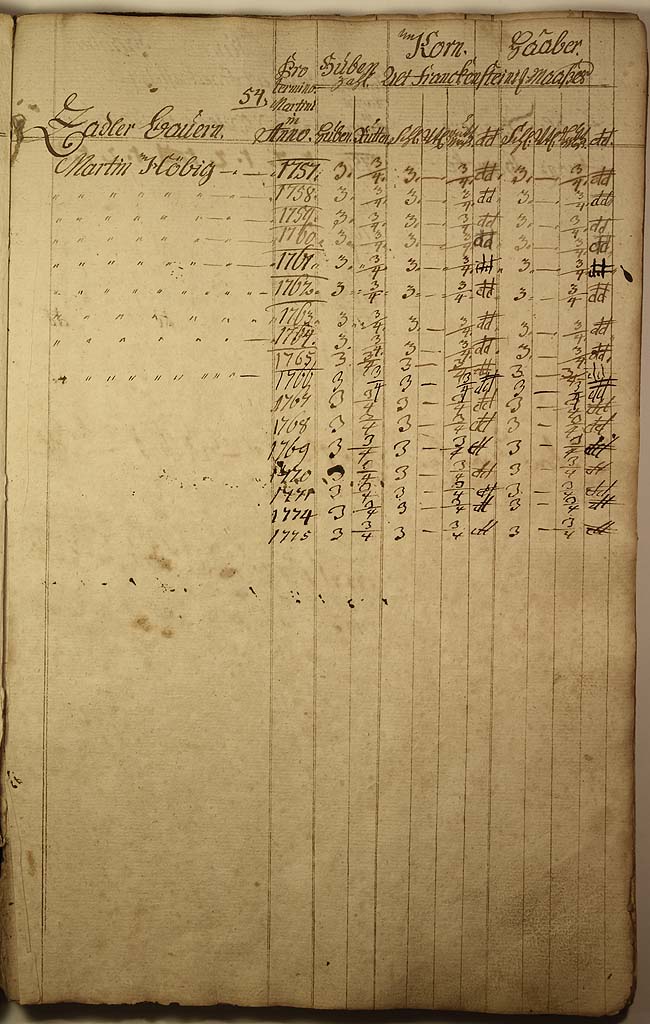 Korn. Haaber.
Pro Huben
termino Zahl. Franckensteini. Maaßes
54. Martini
Zadler Bauern. Anno. Huben Ruthen
Martin Höbig — 1757. 3. 3/4. 3. — 3/4. dd 3. — 3/4. dd
" " " " " " " 1758. 3. 3/4. 3. — 3/4. dd 3. — 3/4. dd
" " " " " " " 1759. 3. 3/4. 3. — 3/4. dd 3. — 3/4. dd
" " " " " " " 1760. 3. 3/4. 3. — 3/4. dd 3. — 3/4. dd
" " " " " " " 1761. 3. 3/4. 3. — 3/4. dd 3. — 3/4. dd
" " " " " " " 1762. 3 3/4 3. — 3/4 dd 3 — 3/4 dd
" " " " 1763. 3. 3/4. 3 — 3/4 dd 3 — 3/4 dd
" " " " " " " 1764. 3. 3/4. 3 — 3/4 dd 3 — 3/4 dd
1765. 3. 3/4 3 — 3/4 dd 3 — 3/4 dd
" " " " " " " 1766 3 3/4 3 — 3/4 dd 3 — 3/4 dd
1767 3 3/4 3 — 3/4 dd 3 — 3/4 dd
1768 3 3/4 3 — 3/4 dd 3 — 3/4 dd
1769 3 3/4 3 — 3/4 dd 3 — 3/4 dd
1770 3 3/4 3 — 3/4 dd 3 — 3/4 dd
3 3/4 3 — 3/4 dd 3 — 3/4 dd
1774 3 3/4 3 — 3/4 dd 3 — 3/4 dd
1775 3 3/4 3 — 3/4 dd 3 — 3/4 dd